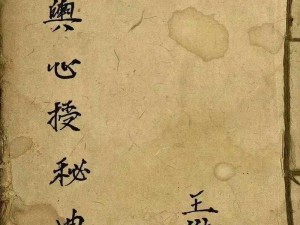 輿心授秘
王